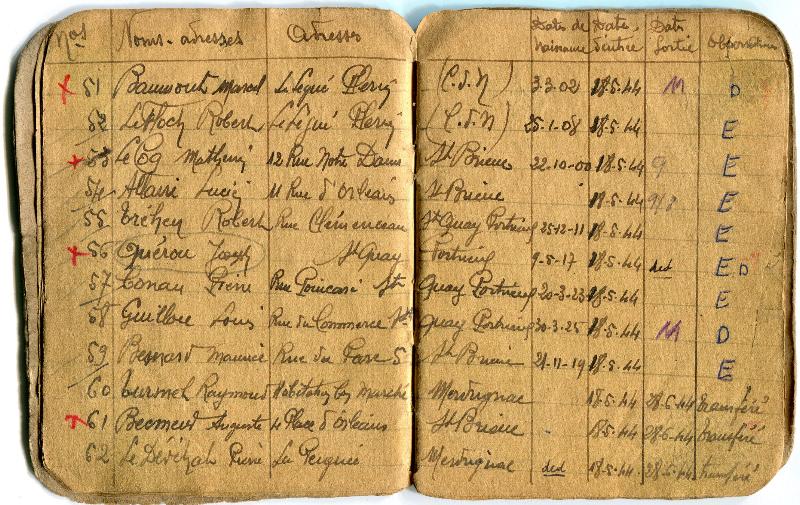 Nos Noms-adresses Adresses Dates de naissance Dates d'entrée Date Sortie Observations
x 51 Baumont Marcel Le Légué Plérin (C.d.N) 3.3.02 18.5.44 M D
52 Robert Le Légué Plérin (C.d.N) 25-1-08 18.5.44 E
x 53 Le Coq 12 Rue Notre Dame St Brieuc 22.10-00 18.5-44 9 E
54 Allaire 11 Rue d'Orléans St Brieuc 18.5-44 9/8 E
55 Tréhen Robert Rue Clémenceau St Quay Portrieux 25-12-11 18.5.44 E
x 56 Guérou Joseph St Quay Portrieux 9-5-17 18.5.44 ded E D
57 Conan Pierre Rue Poincaré St Quay Portrieux 20-3-23 18.5.44 E
58 Guillou Louis Rue du Commerce St Quay Portrieux 30-3-25 18.5.44 M D
59 Besnard Maurice Rue du Parc 5 St Brieuc 21-11-19 18.5.44 E
60 Turmel Raymond Merdrignac 18.5.44 28-5-44 transféré
x 61 Auguste 4 Place d'Orléans St Brieuc - 18.5.44 28-5-44 transféré
62 Pierre La Peignie Merdrignac ded 18-5-44 28-5-44 transféré